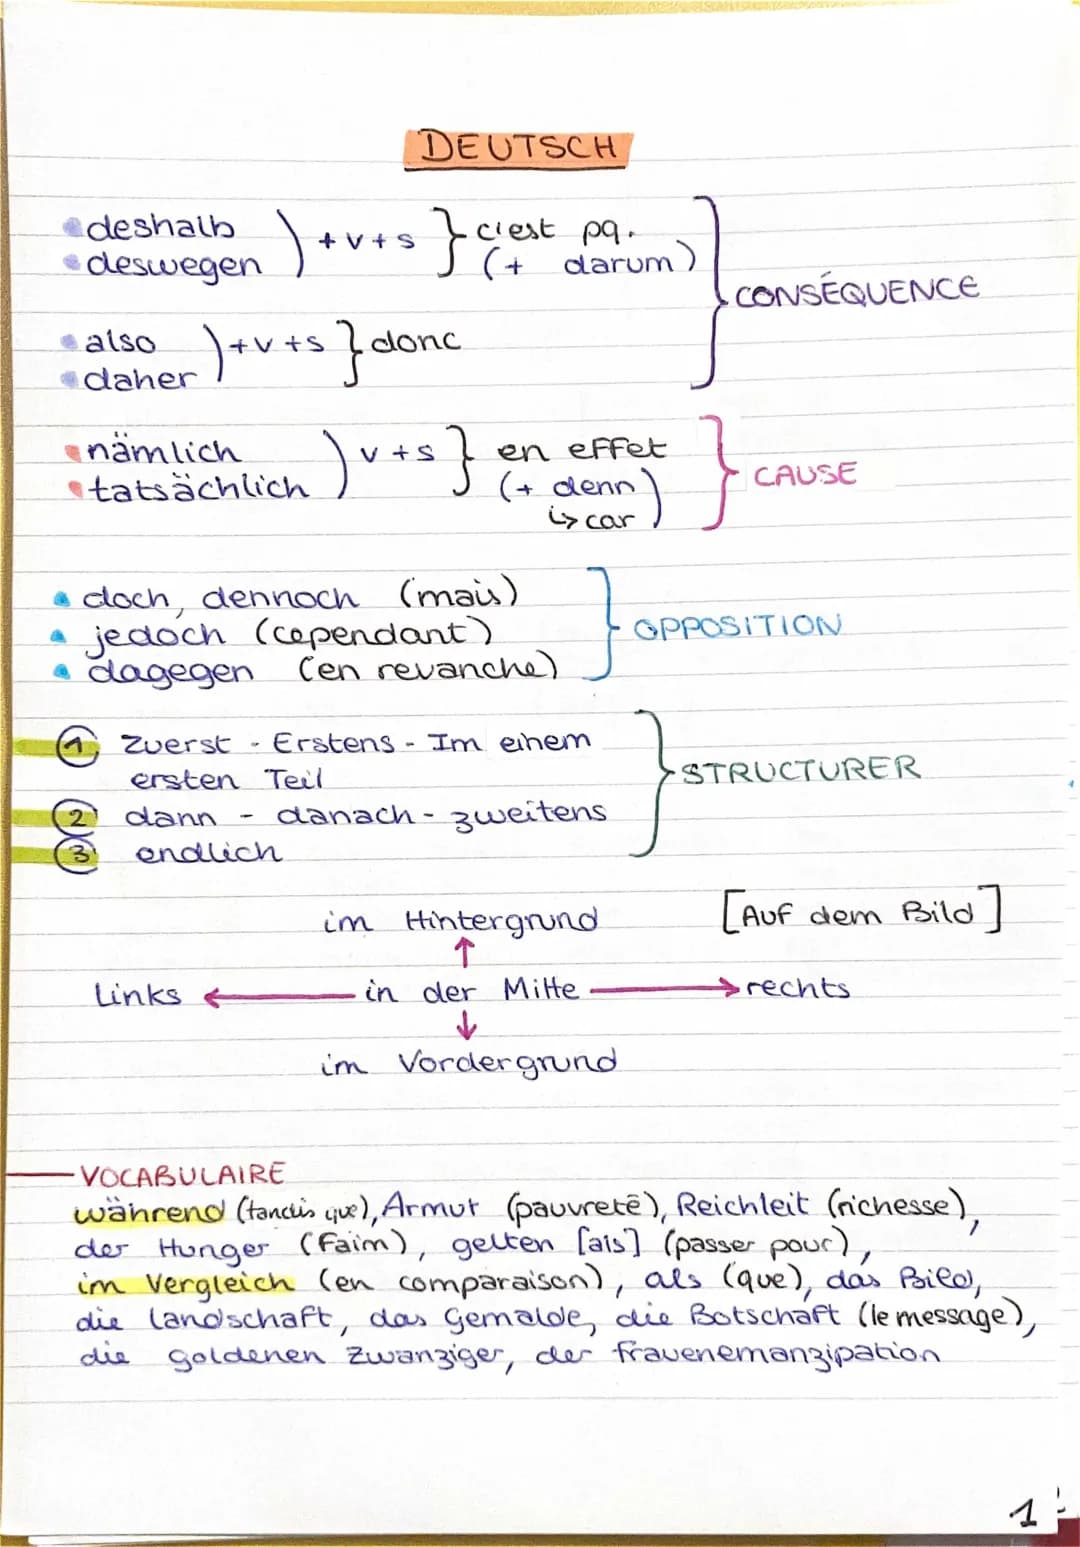 DEUTSCH
• deshalb
• deswegen ) + v + s } c'est pq. (+ darum)
CONSÉQUENCE
• also
• daher ) + v + s } donc
• nämlich
• tatsächlich ) v + s } en effet (+ denn) ↳ car
CAUSE
• doch, dennoch (mais)
• jedoch (cependant)
• dagegen (en revanche)
OPPOSITION
① Zuerst - Erstens - Im einem
ersten Teil
② dann - danach - zweitens
③ endlich
STRUCTURER
im Hintergrund [Auf dem Bild]
↑
Links ← in der Mitte → rechts
↓
im Vordergrund
VOCABULAIRE
während (tandis que), Armut (pauvreté), Reichleit (richesse),
der Hunger (Faim), gelten [als] (passer pour),
im Vergleich (en comparaison), als (que), das Bild,
die Landschaft, das Gemalde, die Botschaft (le message),
die goldenen Zwanziger, der frauenemanzipation
1